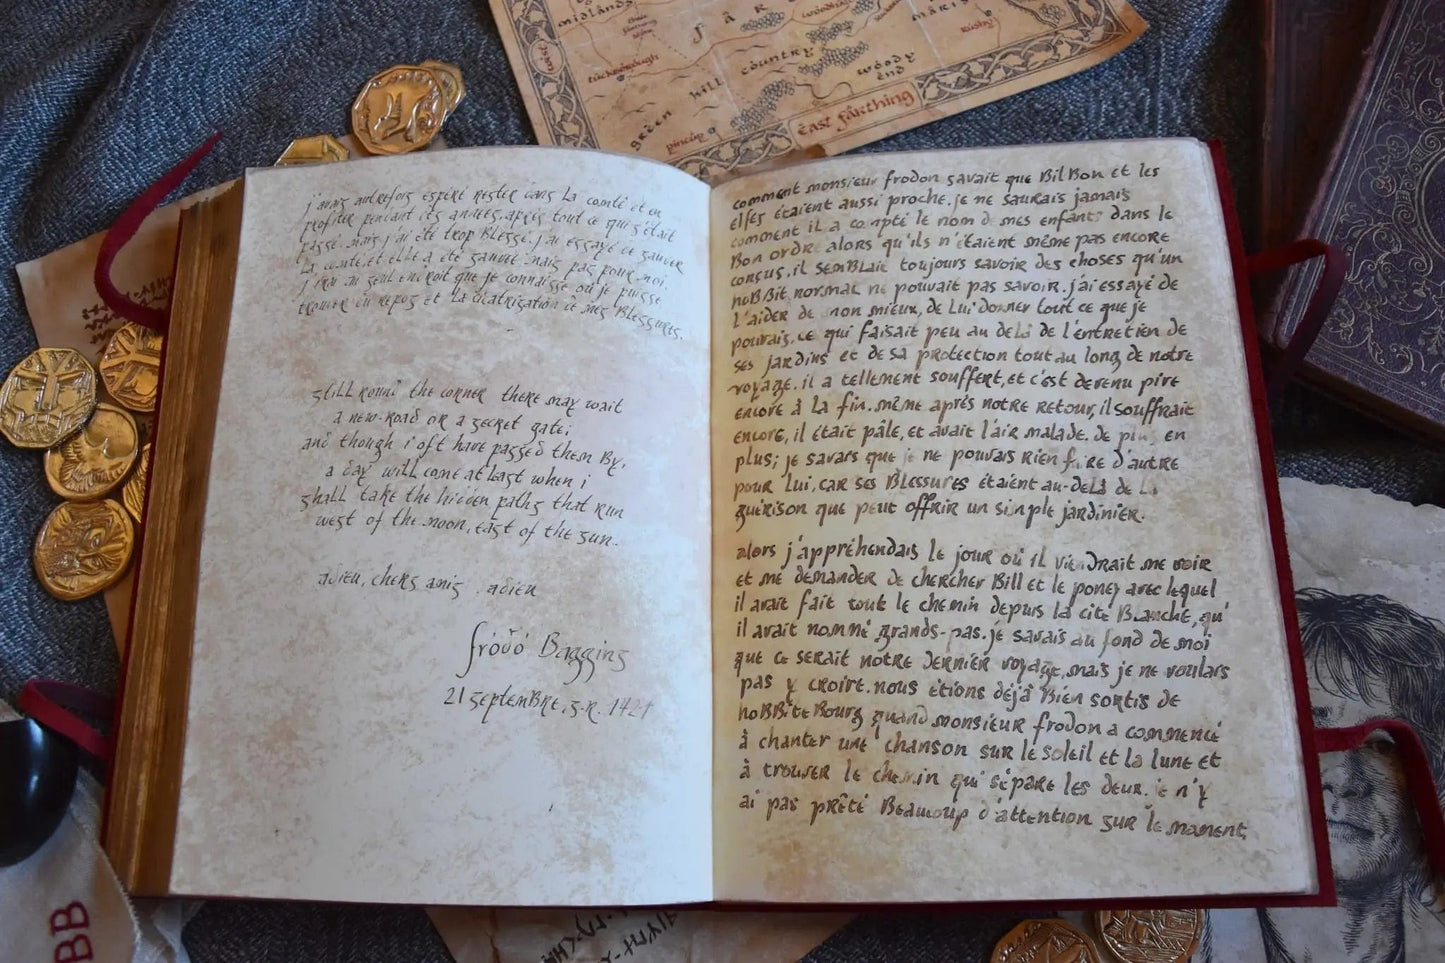 midlands
tuckborough
Green hill country
woody end
pincup
Rushy
east farthing
j'avais autrefois espéré rester dans la comté et en
profiter pendant des années, après tout ce qui s'était
passé. mais j'ai été trop Blessé. j'ai essayé de sauver
la comté, et elle a été sauvée, mais pas pour moi.
seul endroit que je connaisse où je puisse
trouver du repos et la cicatrisation de mes Blessures.
still round the corner there may wait
a new-road or a secret gate;
and though i oft have passed them By,
a day will come at last when i
shall take the hidden paths that run
west of the moon, east of the sun.
adieu, chers amis. adieu
frodo Baggins
21 septemBre, 3.R. 1421
comment monsieur frodon savait que BilBon et les
elfes étaient aussi proche. je ne saurais jamais
comment il a compté le nom de mes enfants dans le
Bon ordre alors qu'ils n'étaient même pas encore
conçus. il semBlait toujours savoir des choses qu'un
hoBBit normal ne pouvait pas savoir. j'ai essayé de
l'aider de mon mieux, de lui donner tout ce que je
pouvais. ce qui faisait peu au delà de l'entretien de
ses jardins et de sa protection tout au long de notre
voyage. il a tellement souffert, et c'est devenu pire
encore à la fin. même après notre retour, il souffrait
encore, il était pâle, et avait l'air malade. de plus en
plus; je savais que je ne pouvais rien faire d'autre
pour lui, car ses Blessures étaient au-delà de la
guérison que peut offrir un simple jardinier.
alors j'appréhendais le jour où il viendrait me voir
et me demander de chercher Bill et le poney avec lequel
il avait fait tout le chemin depuis la cité Blanche, qu'
il avait nommé grands-pas. je savais au fond de moi
que ce serait notre dernier voyage, mais je ne voulais
pas y croire. nous étions déjà Bien sortis de
hoBBiteBourg quand monsieur frodon a commencé
à chanter une chanson sur le soleil et la lune et
à trouver le chemin qui sépare les deux. je n'y
ai pas prêté Beaucoup d'attention sur le moment,
BB